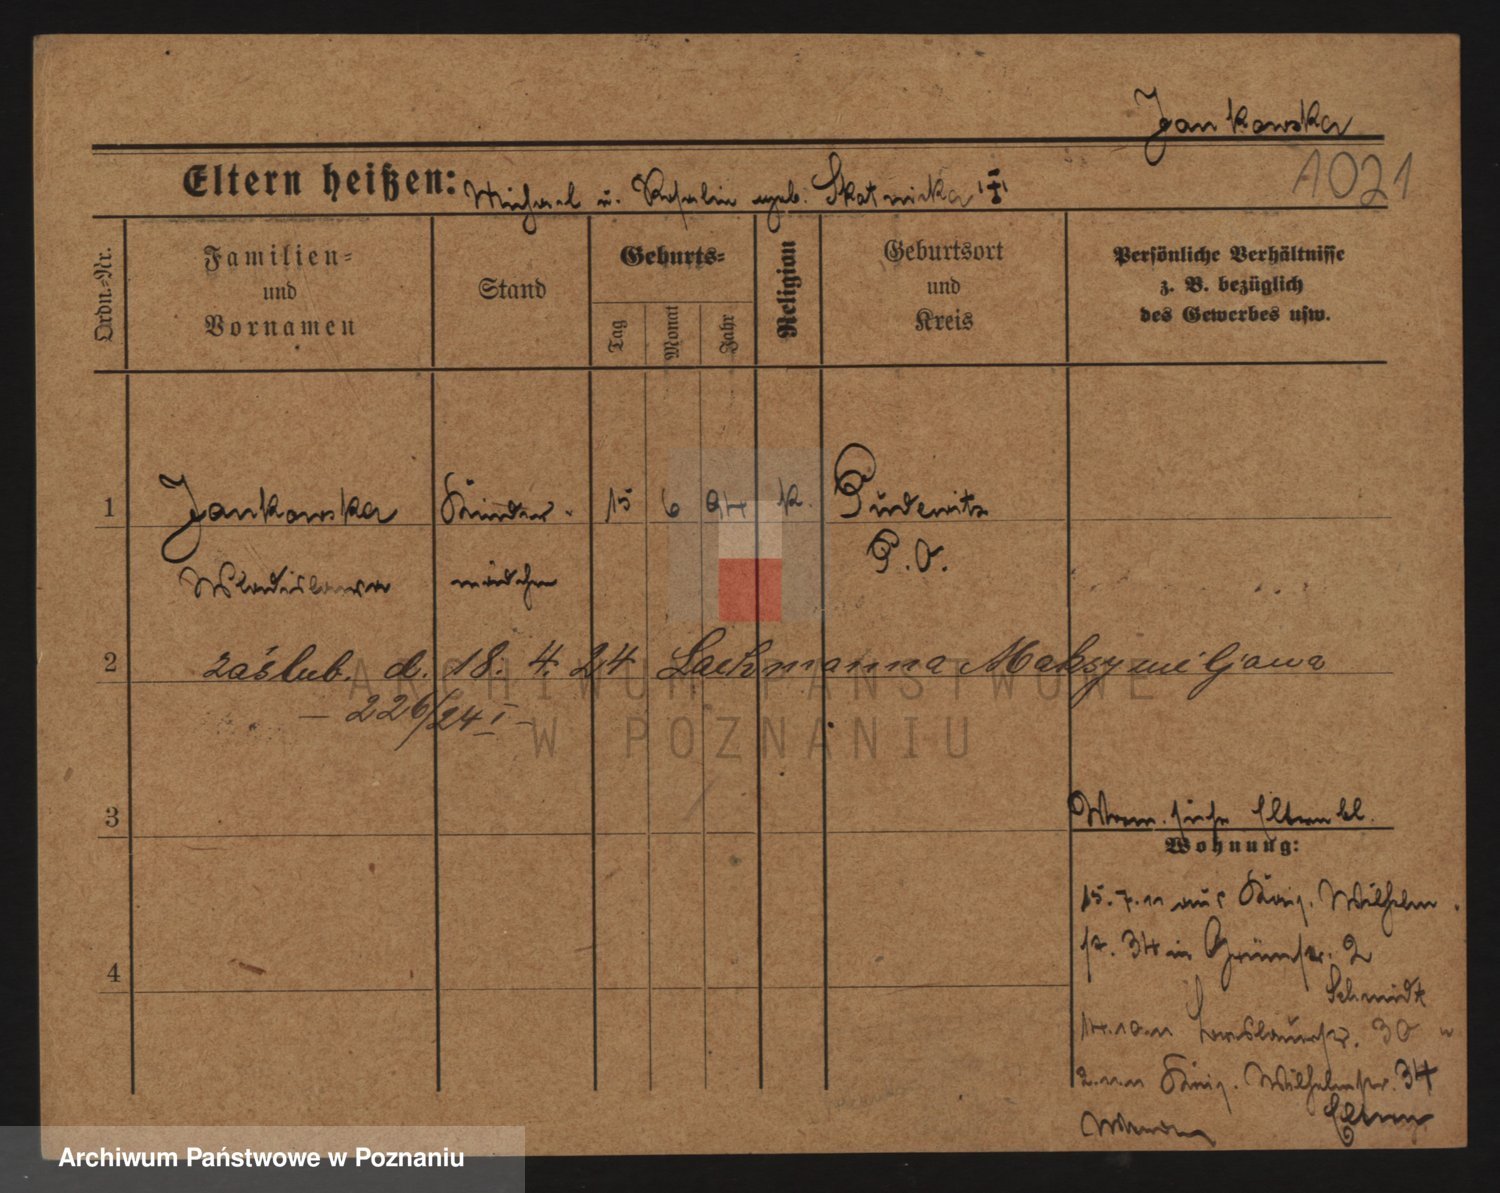 Jankowska
1021
Eltern heißen: Michael u. Rosalie geb. Skatnicka
Ordn.-Nr.
Familien-
und
Vornamen
Stand
Geburts-
Tag
Monat
Jahr
Religion
Geburtsort
und
Kreis
Persönliche Verhältnisse
z. B. bezüglich
des Gewerbes usw.
1 Jankowska Kinder- 15 6 94 k. Pudewitz
Wladislawa mädchen P. O.
2 zaślub. d. 18. 4. 24 Lachmanna Maksymiljana
— 226/24 I —
3
siehe Elternbl.
Wohnung:
15.7.11 aus König. Wilhelm
str. 34 in Grünstr. 2
Schmidt
4
14.10.11 30
2.11.11 König. Wilhelmstr. 34
Eltern
ARCHIWUM PAŃSTWOWE
W POZNANIU
Archiwum Państwowe w Poznaniu